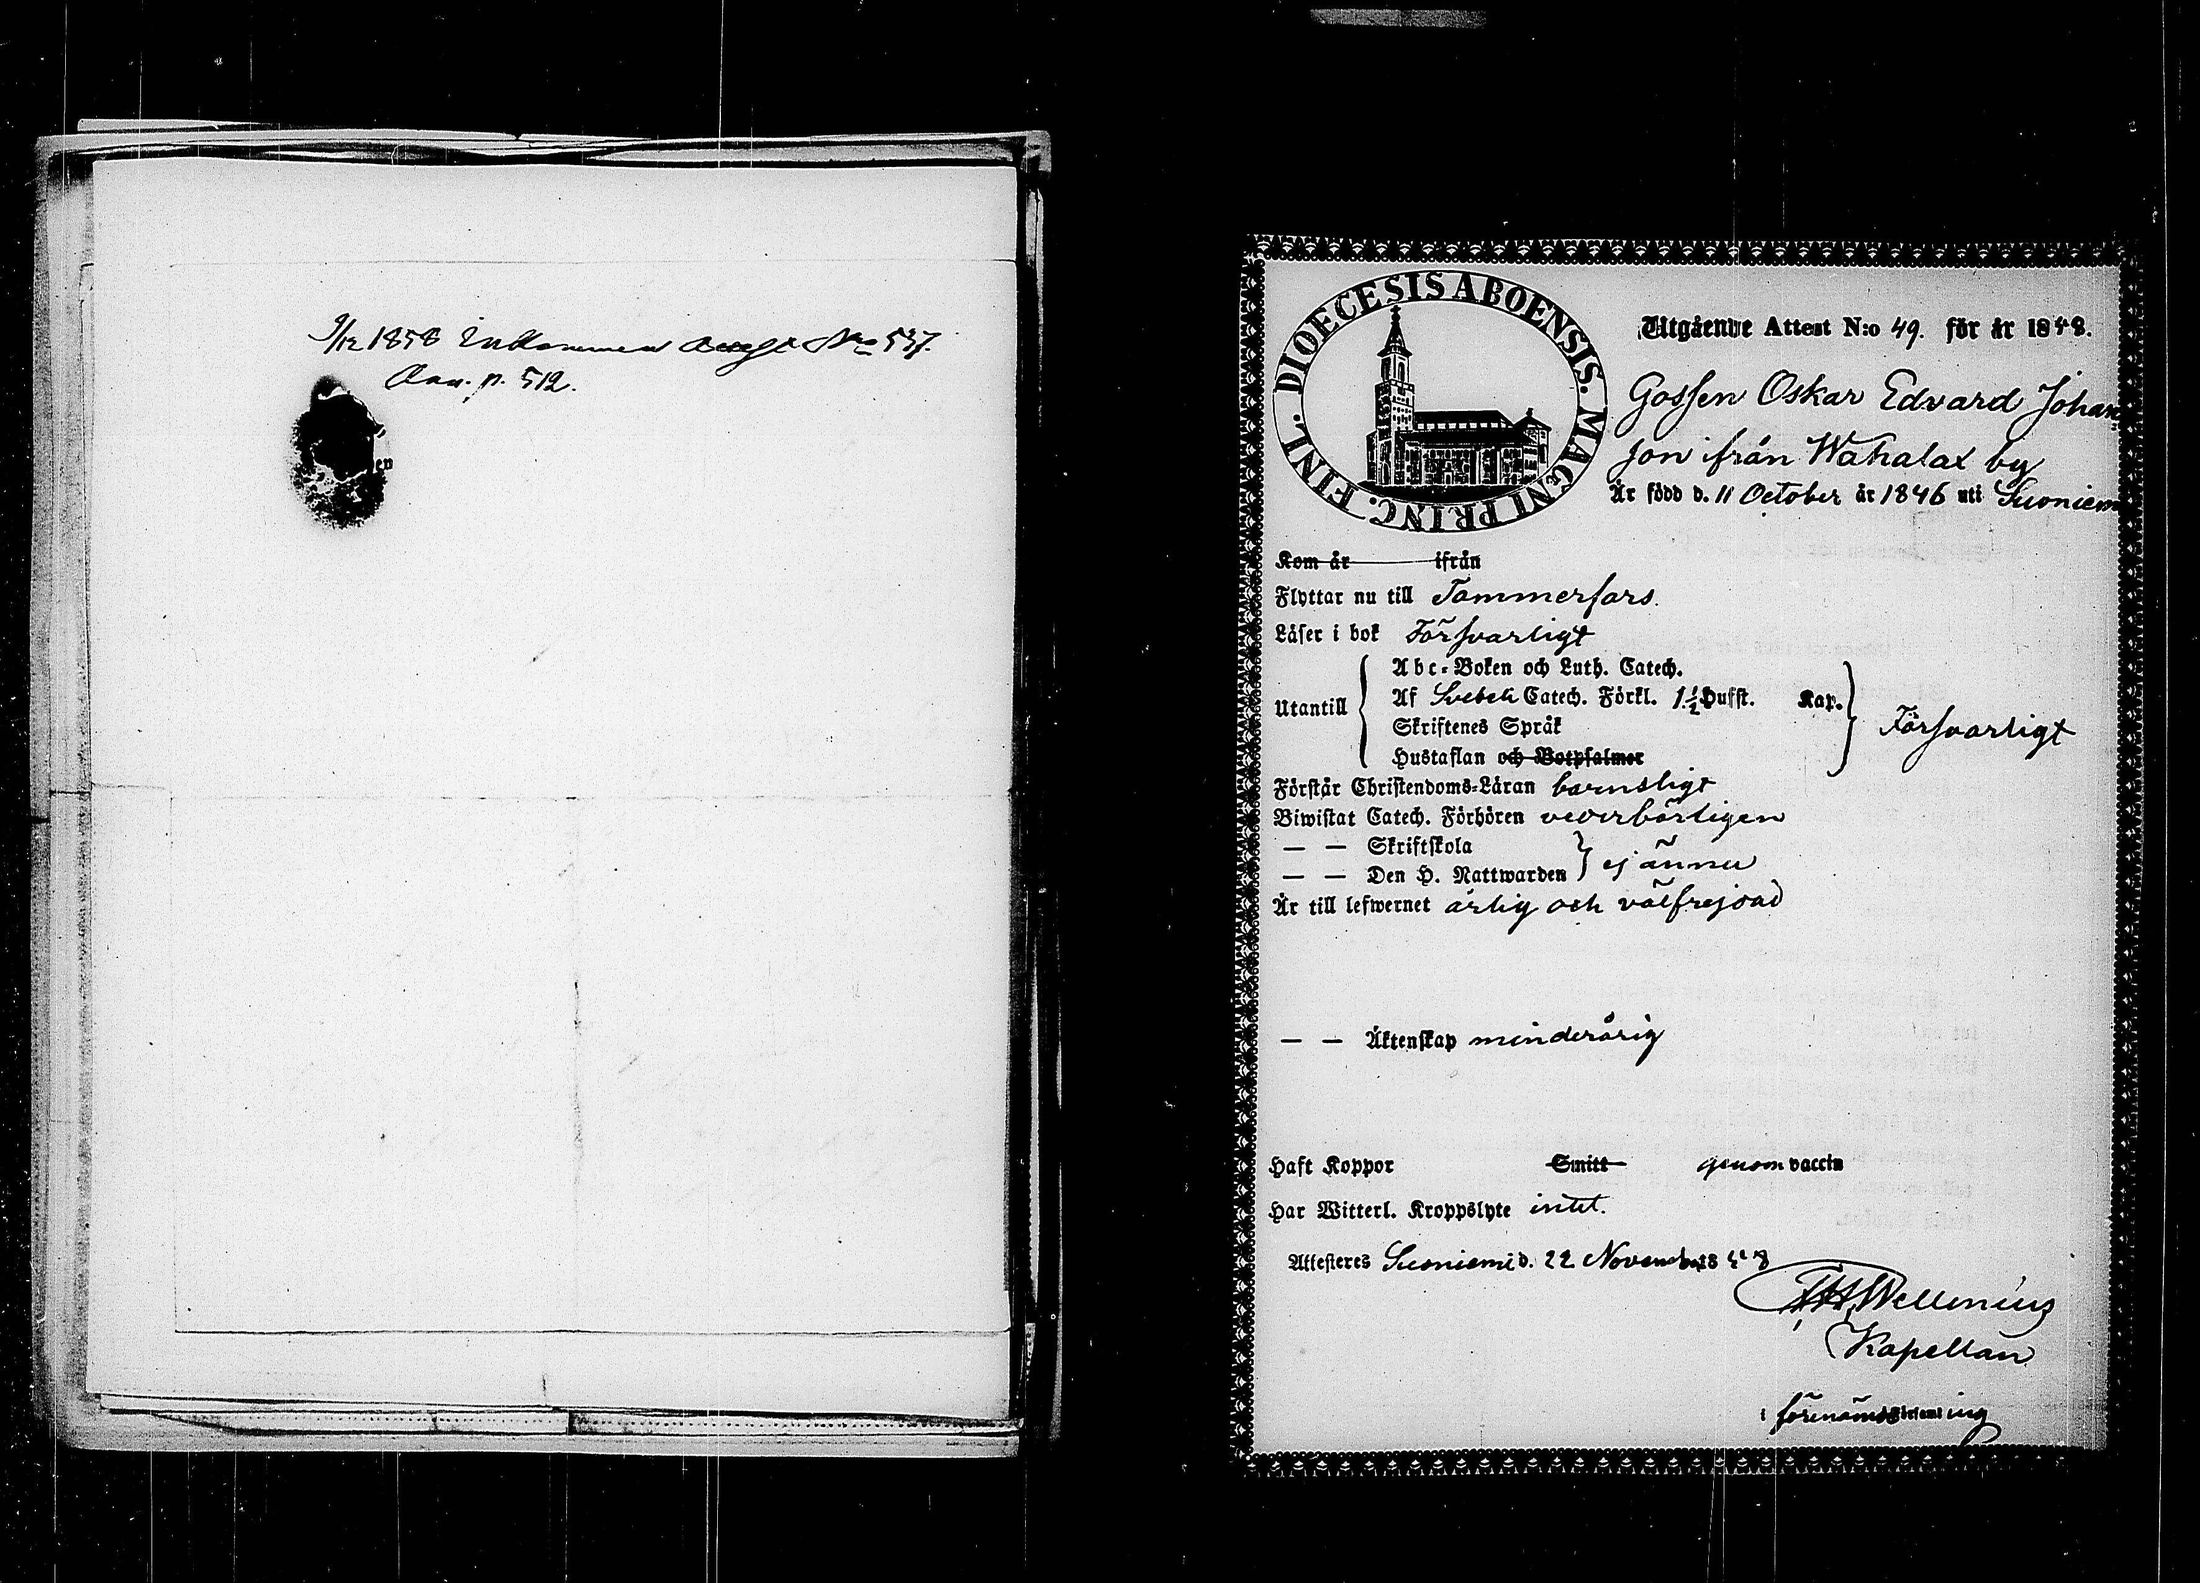 9/12 1858 Inkommen No 537.
p. 512.
DIOECESIS ABOENSIS. MAGNI PRINC. FINL.
Utgående Attest N:o 49. för år 1858.
Gossen Oskar Edvard Johan
son ifrån Wahalax by
Är född d. 11 October år 1846 uti Suoniem
Kom år ifrån
Flyttar nu till Tammerfors.
Läser i bok Försvarligt
Abc-Boken och Luth. Catech.
Utantill Af Svebeli Catech. Förkl. 1 1/2 Hufst. Kap. Försvarligt
Skriftenes Språk
Hustaflan och Botpsalmer
Förstår Christendoms-Läran barnsligt
Biwistat Catech. Förhören vederbörligen
— — Skriftskola
— — Den H. Nattwarden ej ännu
Är till lefwernet ärlig och välfrejdad
— — Äktenskap minderårig
Haft Koppor Smitt genom vaccin
Har Witterl. Kroppslyte intet.
Attesteres Suoniemi d. 22 November 1858
Wellenius
Kapellan
i